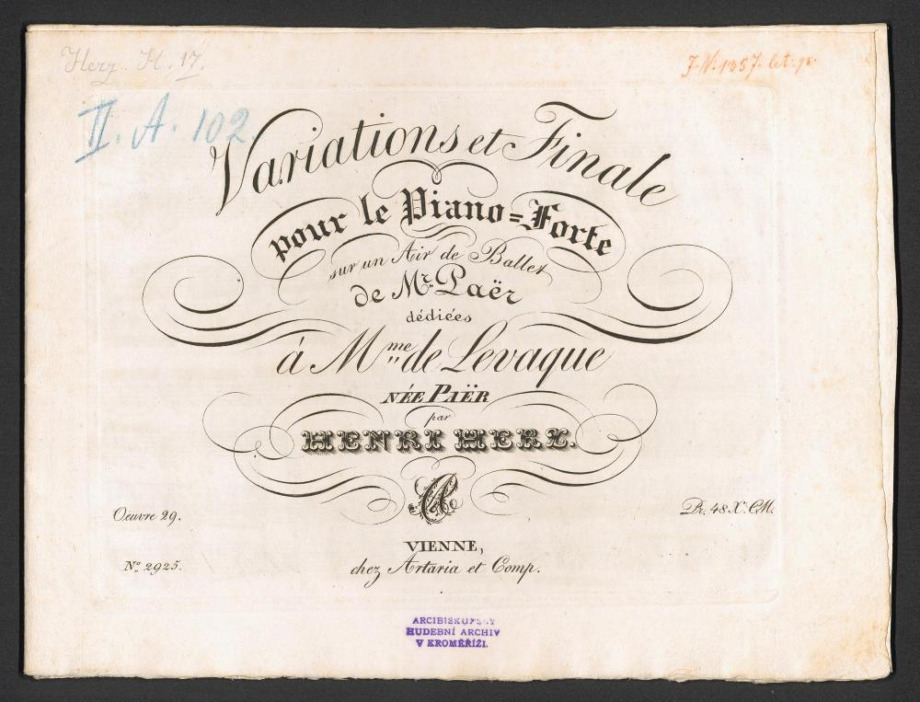 Herz. H. 17.
J.N. 1257. let. p.
II. A. 102.
Variations et Finale
pour le Piano=Forte
sur un Air de Ballet
de Mr. Paër
dédiées
á Mme de Levaque
NÉE PAËR
par
HENRI HERZ.
Oeuvre 29.
Pr. 48 X. CM.
VIENNE,
No. 2925.
chez Artaria et Comp.
ARCIBISKUPSKÝ
HUDEBNÍ ARCHIV
V KROMĚŘÍŽI.